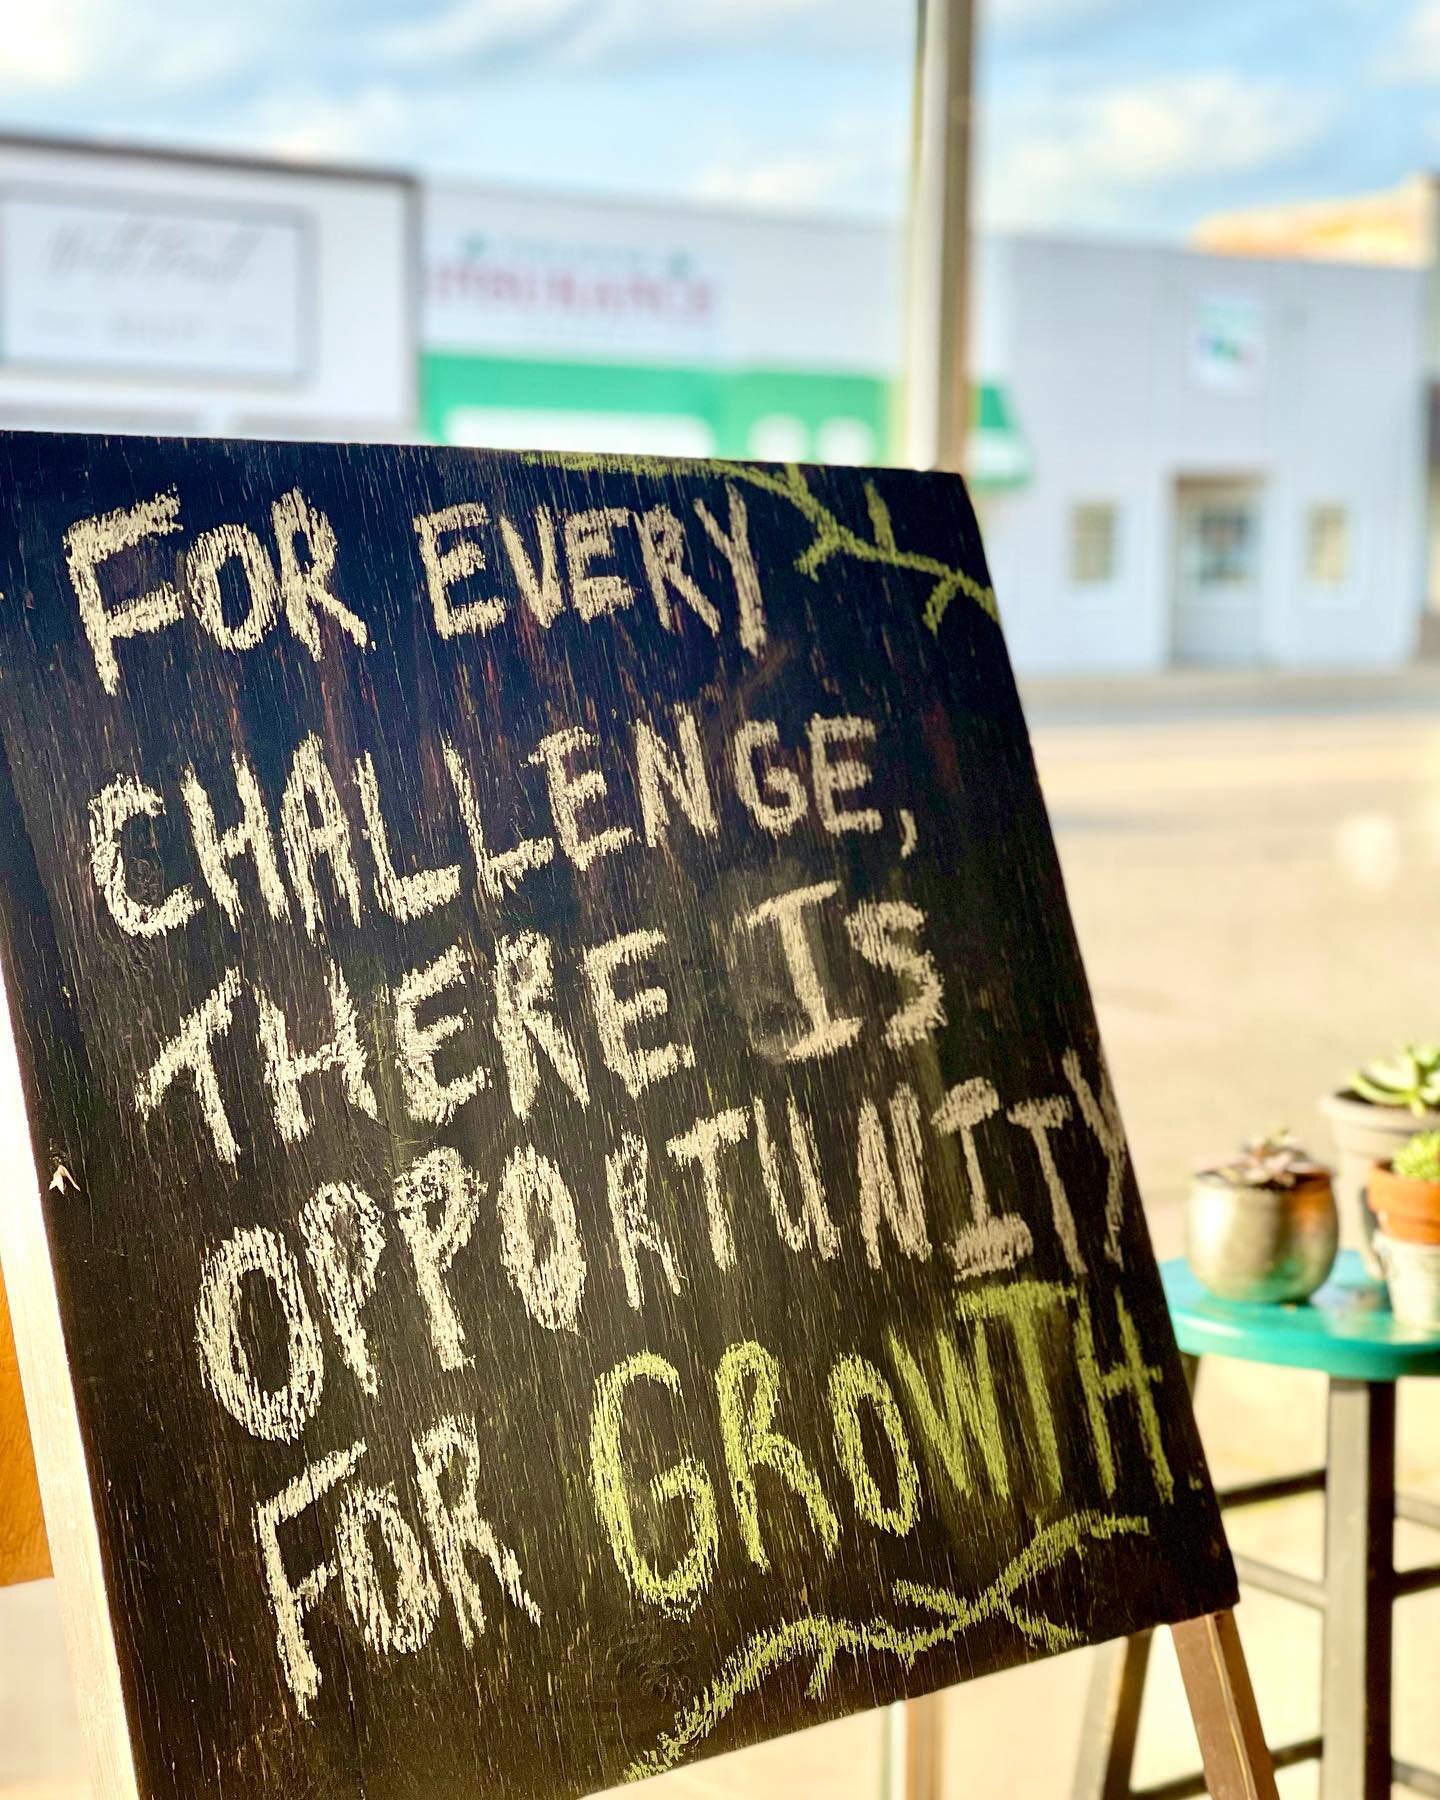 FOR EVERY
CHALLENGE,
THERE IS
OPPORTUNITY
FOR GROWTH
INSURANCE